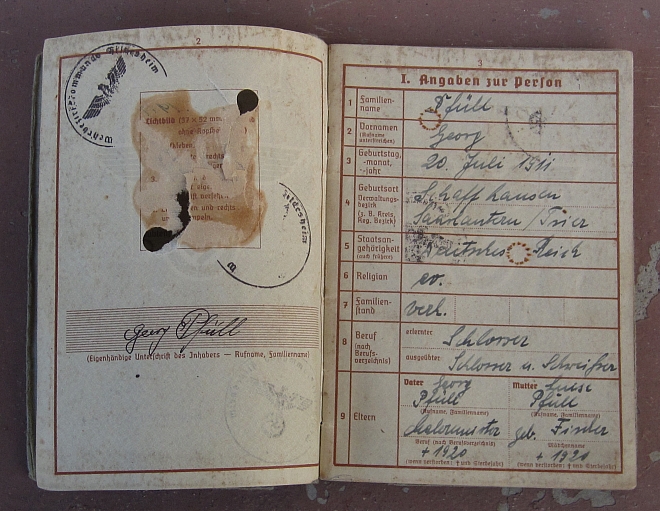 2
Wehrbezirkskommando Hildesheim
Lichtbild (37 × 52 mm,
ohne Kopf
rechts
ildesheim
Georg Pfüll
(Eigenhändige Unterschrift des Inhabers — Rufname, Familienname)
3
I. Angaben zur Person
1 Familien-
name
Pfüll
2 Vornamen
(Rufname
unterstreichen)
Georg
3 Geburtstag,
-monat,
-jahr
20. Juli 1911
4 Geburtsort
Verwaltungs-
bezirk
(z. B. Kreis,
Reg. Bezirk)
Schaffhausen
Saarlautern / Trier
5 Staatsan-
gehörigkeit
(auch frühere)
Deutsches Reich
6 Religion
ev.
7 Familien-
stand
verh.
8 Beruf
(nach
Berufs-
verzeichnis)
erlernter
Schlosser
ausgeübter
Schlosser u. Schweißer
9 Eltern
Vater Georg
Pfüll
(Rufname, Familienname)
Malermeister
Beruf (nach Berufsverzeichnis)
+ 1920
(wenn verstorben: † und Sterbejahr)
Mutter Luise
Pfüll
(Rufname, Familienname)
geb. Fischer
Mädchenname
+ 1921
(wenn verstorben: † und Sterbejahr)